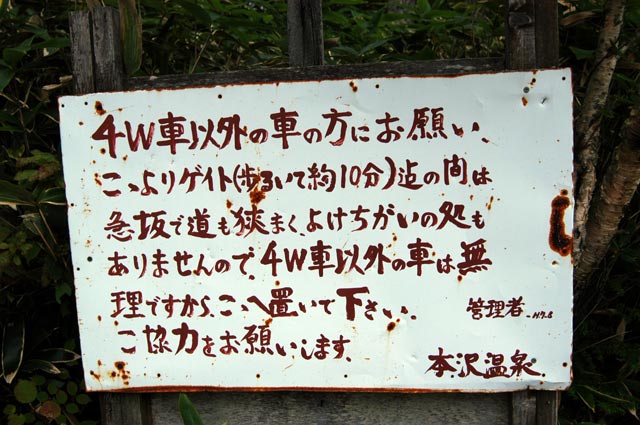 4W車以外の車の方にお願い、
こゝよりゲイト(歩るいて約10分)迠の間は
急坂で道も狭まく、よけちがいの処も
ありませんので、4W車以外の車は無
理ですから、こゝへ置いて下さい。
ご協力をお願いします。
管理者 H.7.8
本沢温泉